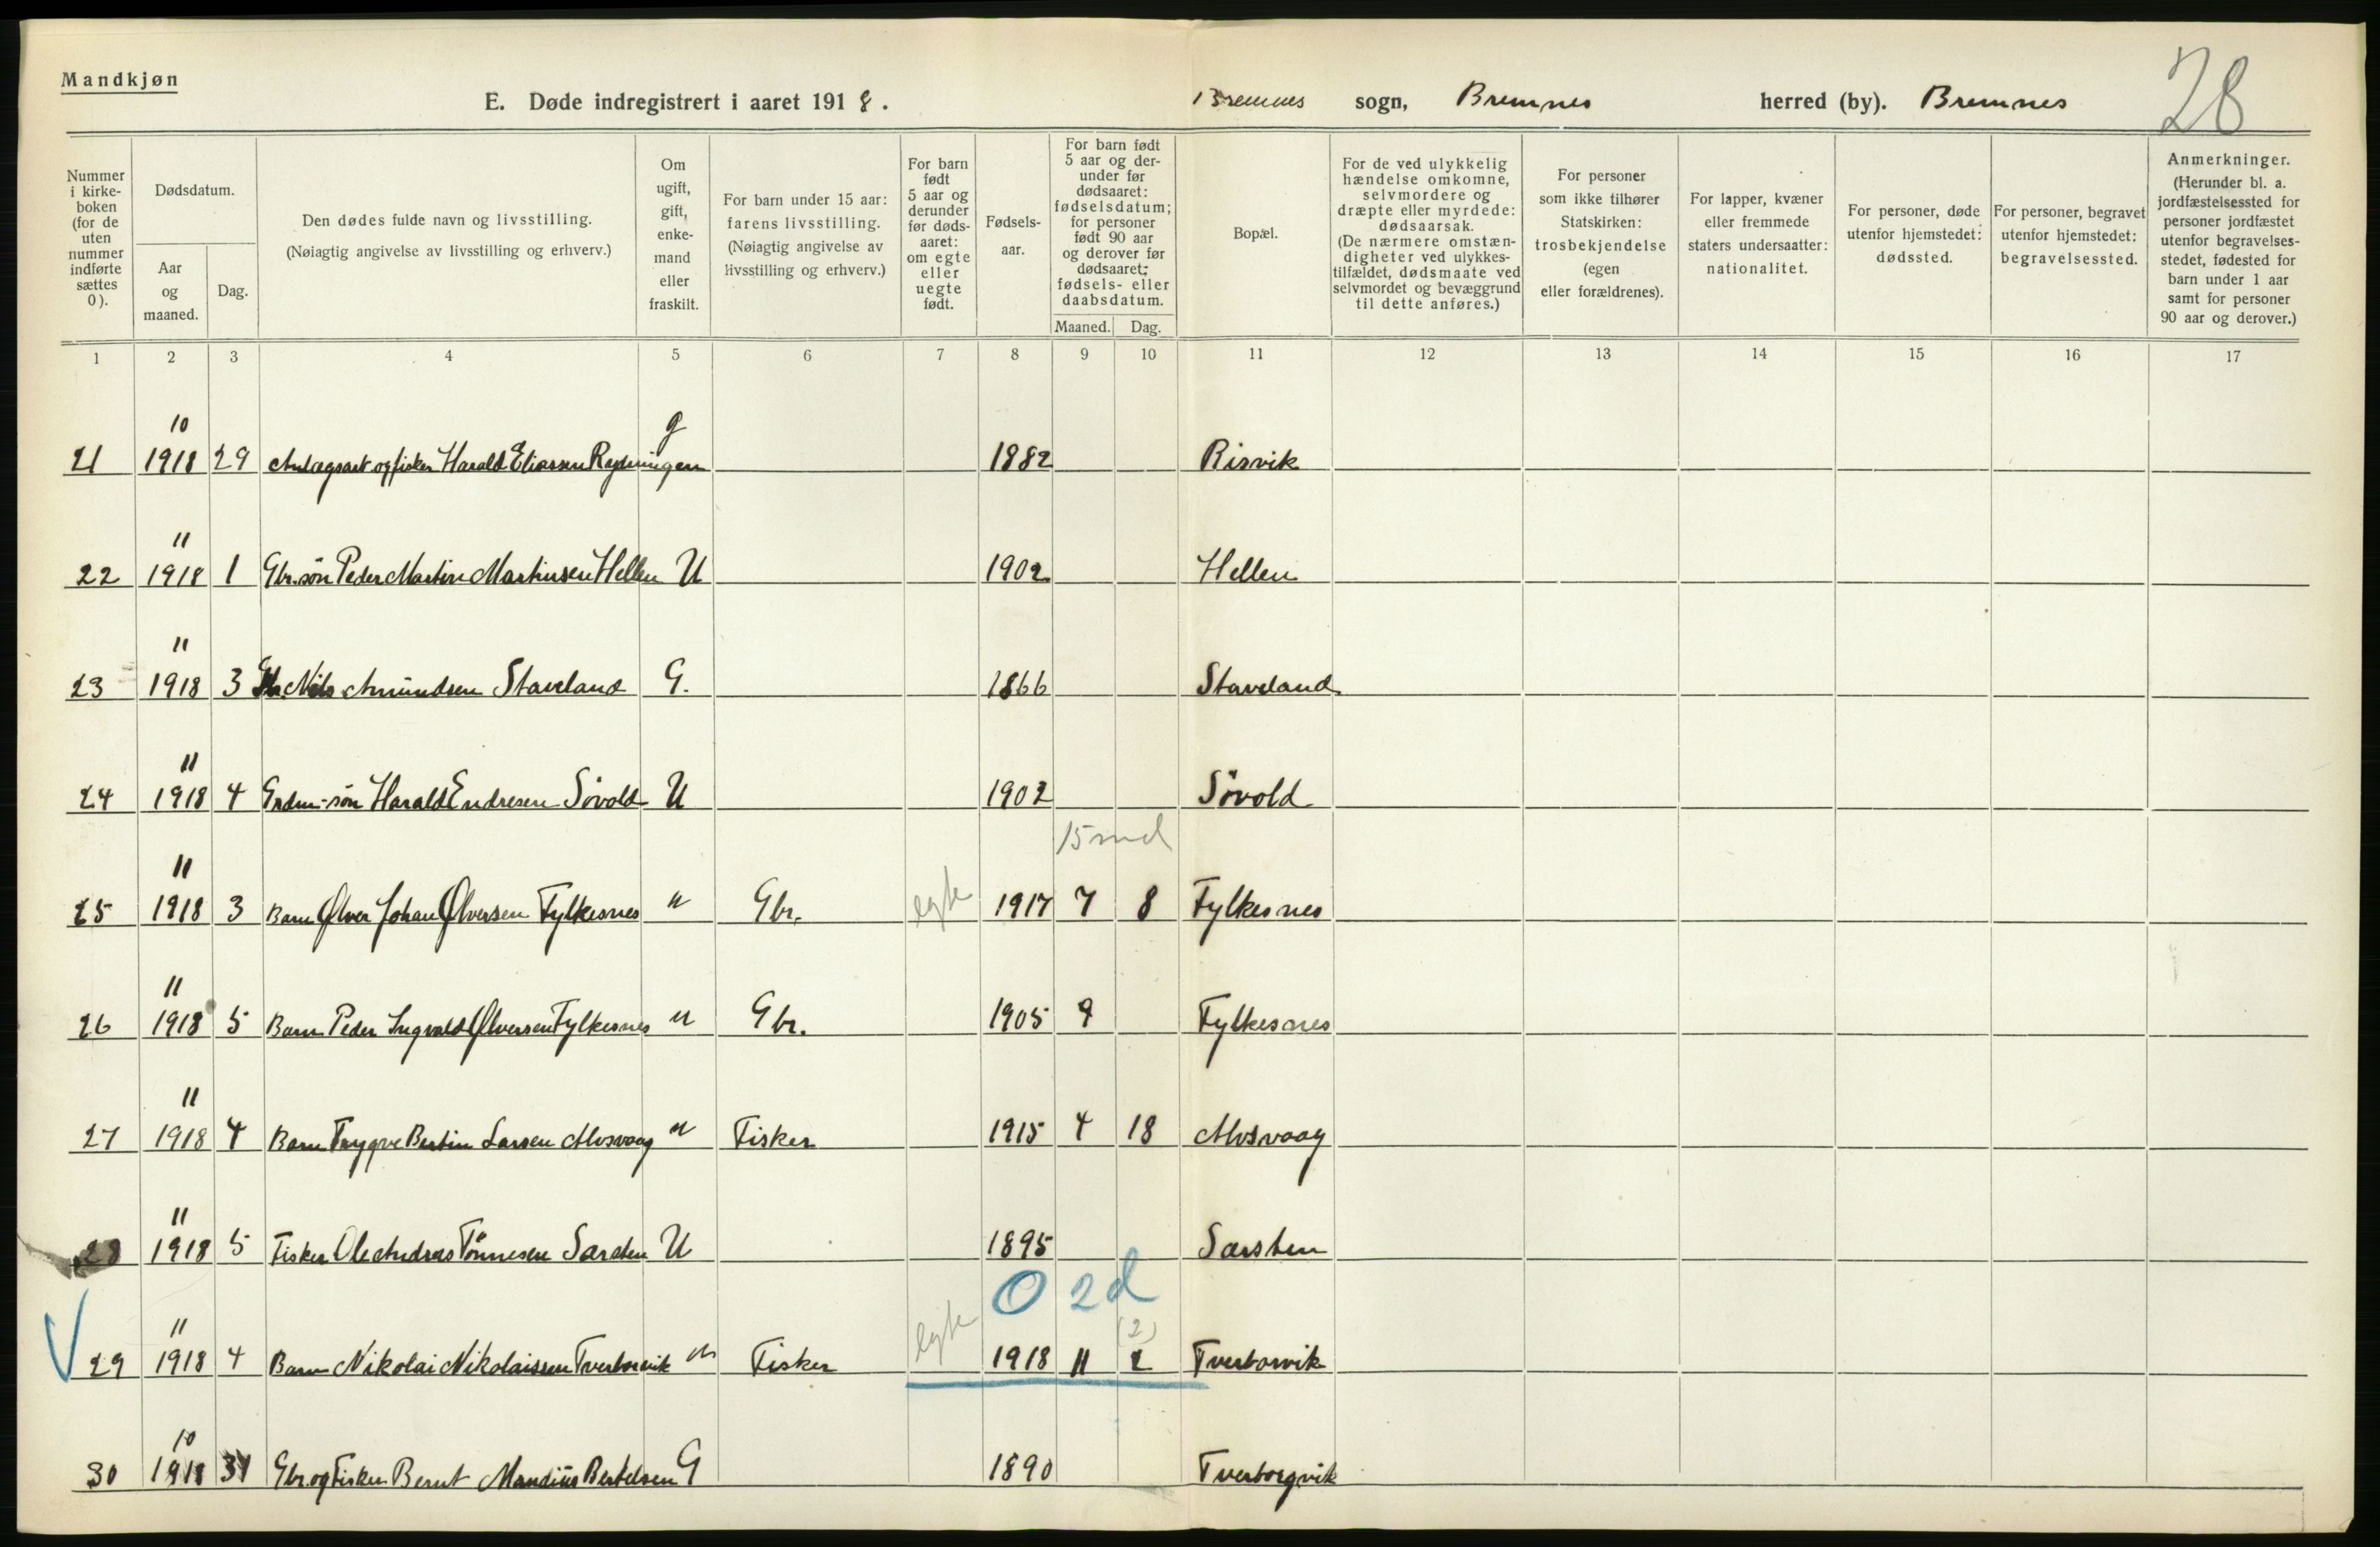 Mandkjøn
E. Døde indregistrert i aaret 1918. Bremnes sogn, Bremnes herred (by). Bremnes 28
Nummer i kirke- boken (for de uten nummer indførte sættes 0).
Dødsdatum.
Aar og maaned.
Dag.
Den dødes fulde navn og livsstilling.
(Nøiagtig angivelse av livsstilling og erhverv.)
Om ugift, gift, enke- mand eller fraskilt.
For barn under 15 aar: farens livsstilling. (Nøiagtig angivelse av livsstilling og erhverv.)
For barn født 5 aar og derunder før døds- aaret: om egte eller uegte født.
Fødsels- aar.
For barn født 5 aar og der- under før dødsaaret: fødselsdatum; for personer født 90 aar og derover før dødsaaret: fødsels- eller daabsdatum.
Maaned. Dag.
Bopæl.
For de ved ulykkelig hændelse omkomne, selvmordere og dræpte eller myrdede: dødsaarsak. (De nærmere omstæn- digheter ved ulykkes- tilfældet, dødsmaate ved selvmordet og bevæggrund til dette anføres.)
For personer som ikke tilhører Statskirken: trosbekjendelse (egen eller forældrenes).
For lapper, kvæner eller fremmede staters undersaatter: nationalitet.
For personer, døde utenfor hjemstedet: dødssted.
For personer, begravet utenfor hjemstedet: begravelsessted.
Anmerkninger. (Herunder bl. a. jordfæstelsessted for personer jordfæstet utenfor begravelses- stedet, fødested for barn under 1 aar samt for personer 90 aar og derover.)
1 2 3 4 5 6 7 8 9 10 11 12 13 14 15 16 17
10 g
21 1918 29 Anlægsarb og fisker Harald Eliassen 1882 Risvik
11
22 1918 1 Gbr.søn Peder Martin Martinsen Hellen U 1902 Hellen
11
23 1918 3 Nils Amundsen Staveland G. 1866 Staveland
11
24 1918 4 søn Harald Endresen Søvold U 1902 Søvold
15 md
11
25 1918 3 Barn Ølver Johan Ølversen Fylkesnes u Gbr. egte 1917 7 8 Fylkesnes
11
26 1918 5 Barn Peder Ingvald Ølversen Fylkesnes u Gbr. 1905 9 Fylkesnes
11
27 1918 4 Barn Trygve Bertin Larsen Alvsvaag u Fisker 1915 4 18 Alvsvaag
11
28 1918 5 Fisker Ole Andreas Tönnesen U 1895
0 2d
11 (2)
29 1918 4 Barn Nikolai Nikolaissen Tverborvik u Fisker egte 1918 11 2 Tverborvik
10
30 1918 31 Gbr. og Fisker Bernt Mandius Bertelsen G 1890 Tverborgvik